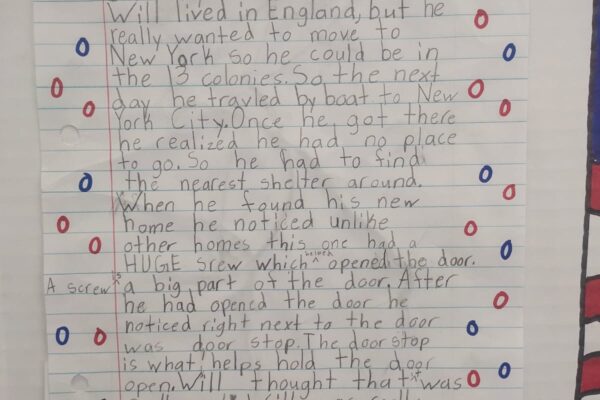 Will lived in England, but he
really wanted to move to
New York so he could be in
the 13 colonies. So the next
day he travled by boat to New
York City. Once he got there
he realized he had no place
to go. So he had to find
the nearest shelter around.
When he found his new
home he noticed unlike
other homes this one had a
HUGE srew which helped opened the door.
A screw is a big part of the door. After
he had opened the door he
noticed right next to the door
was door stop. The door stop
is what helps hold the door
open. Will thought that it was